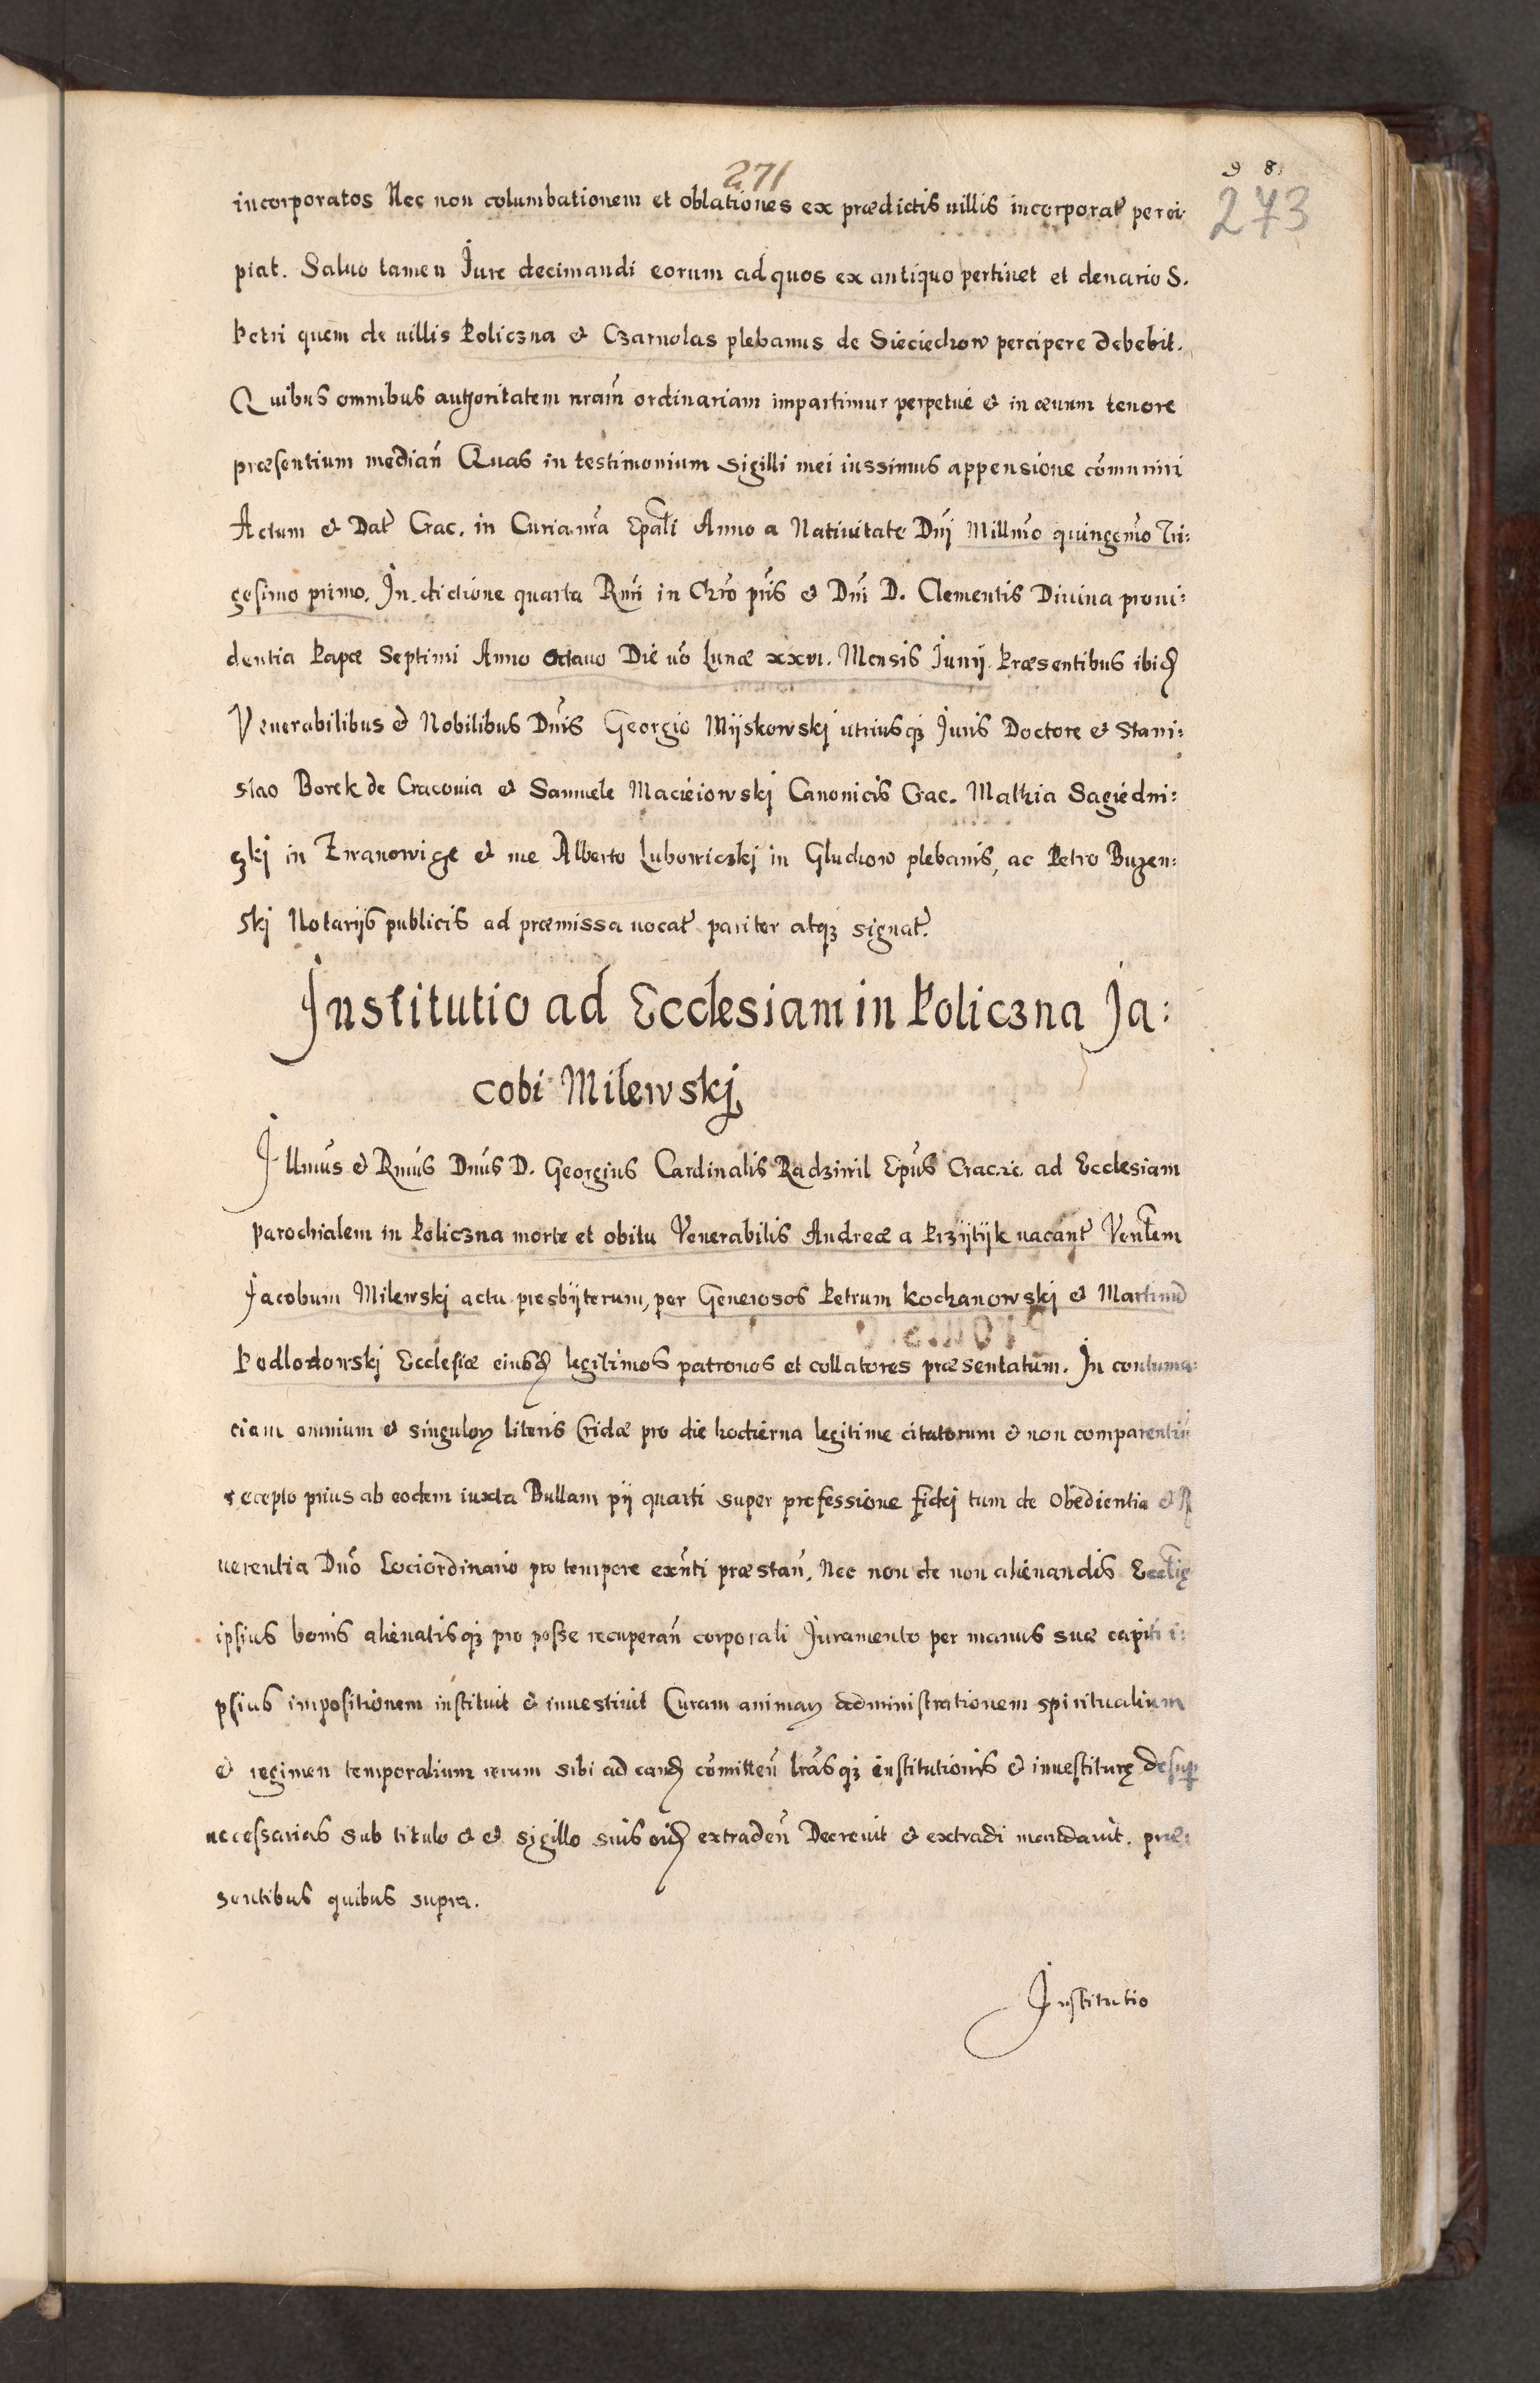 271
9 8
273
incorporatos Nec non columbationem et oblationes ex prædictis villis incorporat̃ perci-
piat. Saluo tamen Jure decimandi eorum ad quos ex antiquo pertinet et denario S.
Petri quem de villis Policzna & Czarnolas plebanus de Sieciechow percipere debebit.
Quibus omnibus authoritatem nram̃ ordinariam impartimur perpetue & in ævum tenore
præsentium median̄ Quas in testimonium sigilli mei iussimus appensione cōmuniri
Actum & Dat̃ Crac. in Curia nrã Epãli Anno a Natiuitate Dñj Millmõ quingemõ Tri:
gesimo primo. In dictione quarta Rmi in Chrõ pris & Dñi D. Clementis Diuina proui:
dentia Papæ Septimi Anno octauo Die võ Lunæ xxvi. Mensis Junij. Præsentibus ibid
Venerabilibus & Nobilibus Dñis Georgio Mijskowskj utriusqz Juris Doctore & Stani:
slao Borek de Cracouia & Samuele Macieiowskj Canonicis Crac. Mathia Sagiedni:
çkj in Zwanowige & me Alberto Lubowiczkj in Gluchow plebanis, ac Petro Buzen:
skj Notarijs publicis ad præmissa uocat̃ pariter atqz signat̃.
Institutio ad Ecclesiam in Policzna Ja:
cobi Milewskj
Illmus & Rmus Dnus D. Georgius Cardinalis Radziwil Epũs Crac. ad Ecclesiam
parochialem in Policzna morte et obitu Venerabilis Andreæ a Przÿtÿk vacant̃ Venl̃em
Jacobum Milewskj actu presbÿterum, per Generosos Petrum Kochanowskj & Martinũ
Podlodowskj Ecclesiæ eiusd legitimos patronos et collatores præsentatum. In contuma:
ciam omnium & singulor literis Cridæ pro die hodierna legitime citatorum & non comparentiũ
recepto prius ab eodem iuxta Bullam pij quarti super professione fidej tum de obedientia & R
uerentia Dnõ Lociordinario pro tempore exñti præstañ. Nec non de non alienandis Eccl̃ię
ipsius bonis alienatisqz pro posse recuperañ corporali Juramento per manus suæ capiti i:
psius impositionem instituit & inuestiuit Curam animar administrationem spiritualium
& regimen temporalium rerum sibi ad eand cōmitteñ lrãsqz institutionis & inuestiturę desup
necessarias sub titulo & et sigillo suis eid extradeñ Decreuit & extradi mandauit. præ:
sentibus quibus supra.
Institutio